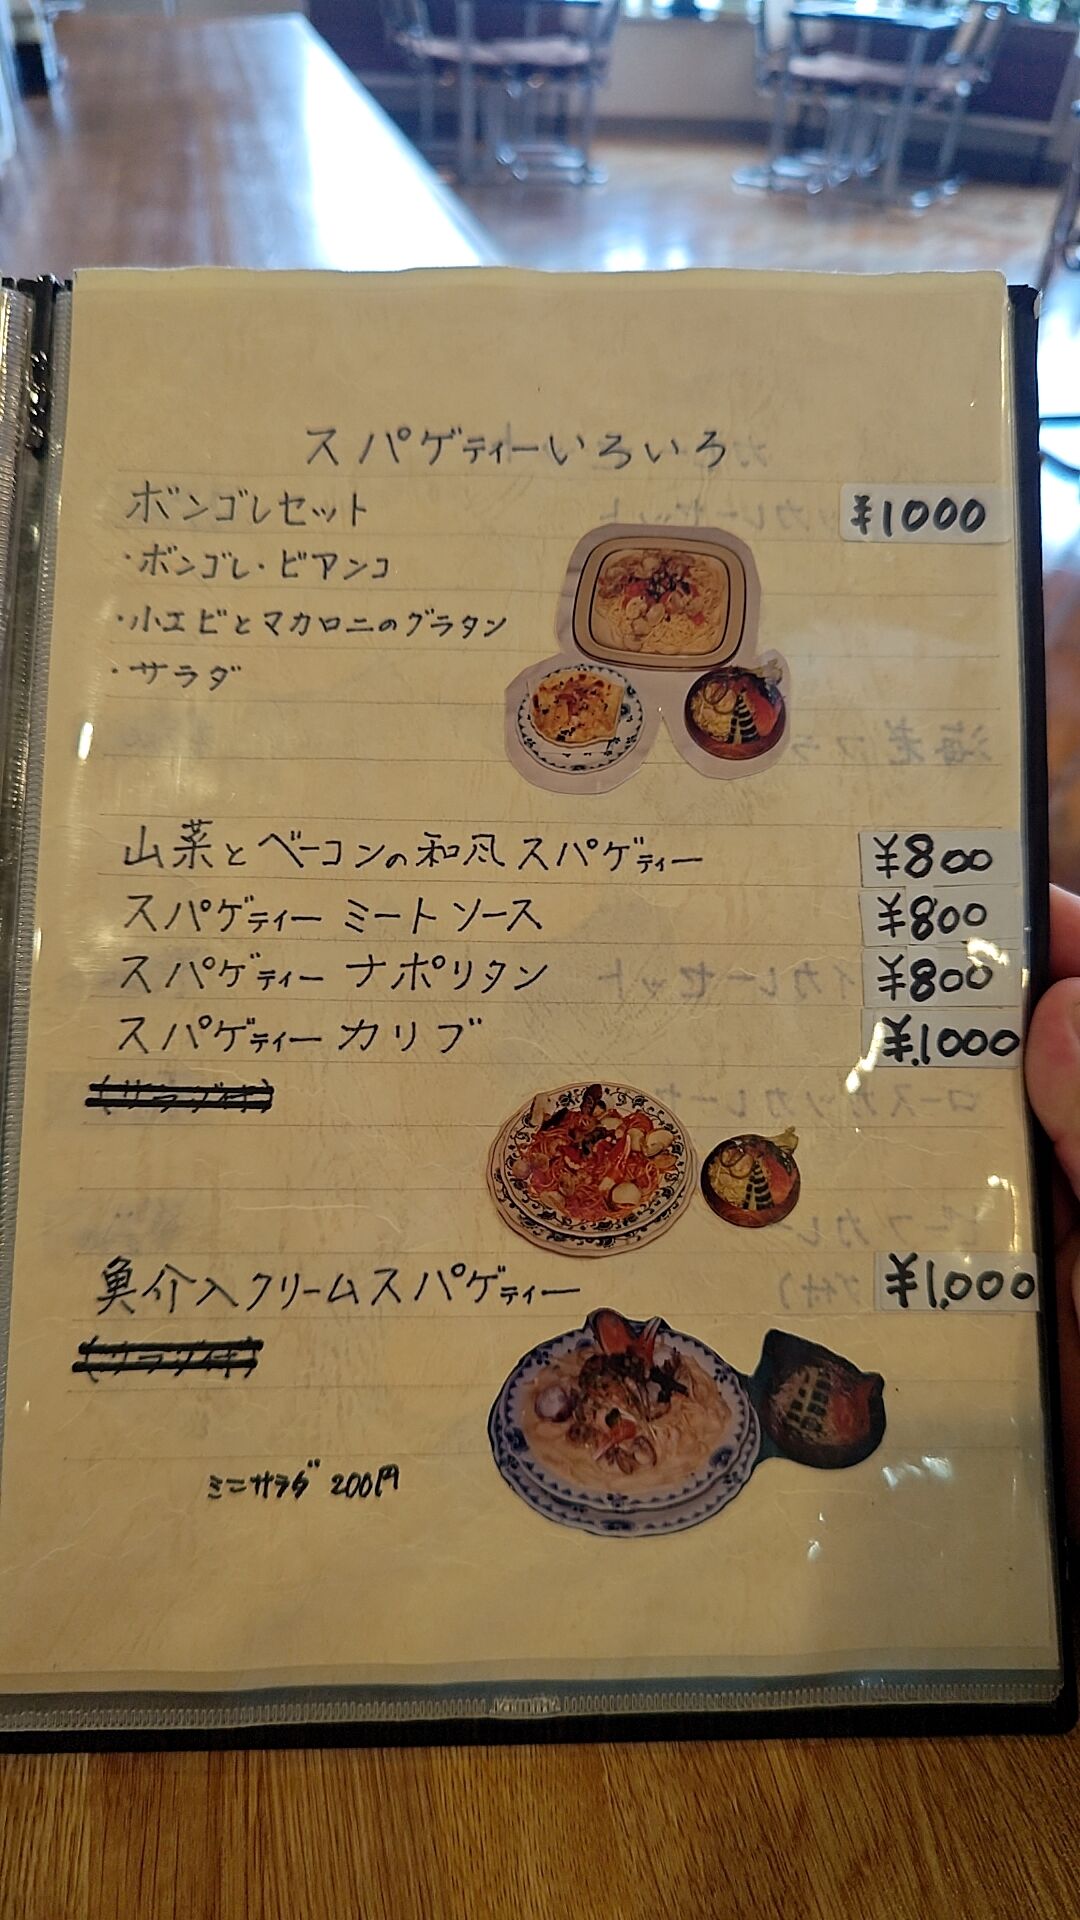 スパゲティーいろいろ
ボンゴレセット ¥1000
・ボンゴレ・ビアンコ
・小エビとマカロニのグラタン
・サラダ
山菜とベーコンの和風スパゲティー ¥800
スパゲティー ミートソース ¥800
スパゲティー ナポリタン ¥800
スパゲティー カリブ ¥1000
(サラダ付)
魚介入クリームスパゲティー ¥1,000
(サラダ付)
ミニサラダ 200円